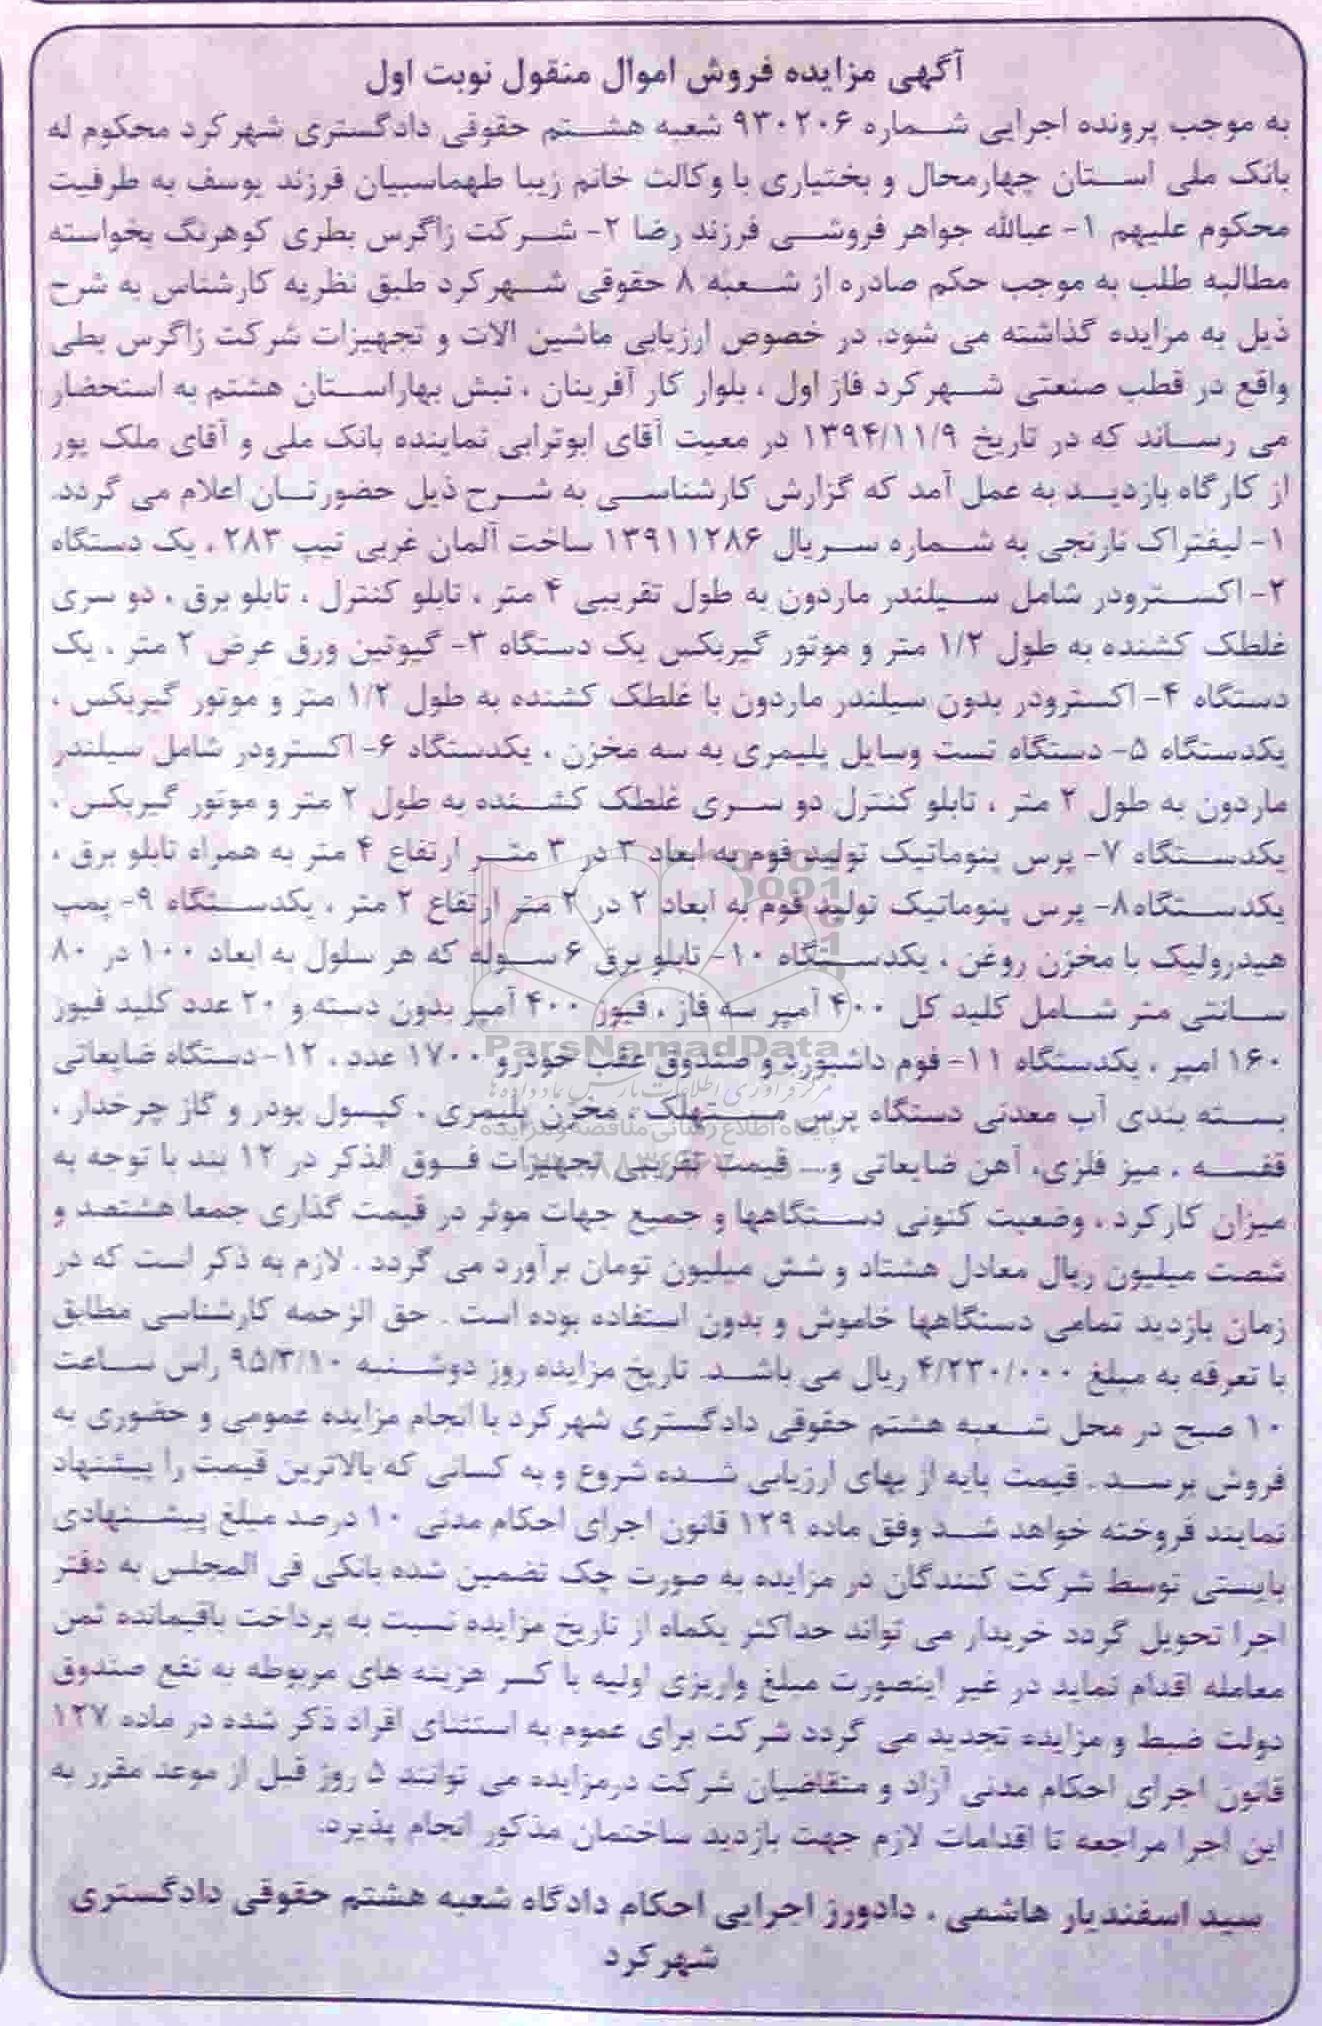 آگهی مزایده فروش اموال منقول نوبت اول
به موجب پرونده اجرایی شماره ۹۳۰۲۰۶ شعبه هشتم حقوقی دادگستری شهرکرد محکوم له
بانک ملی استان چهارمحال و بختیاری با وکالت خانم زیبا طهماسبیان فرزند یوسف به طرفیت
محکوم علیهم ۱- عبالله جواهر فروشی فرزند رضا ۲- شرکت زاگرس بطری کوهرنگ بخواسته
مطالبه طلب به موجب حکم صادره از شعبه ۸ حقوقی شهرکرد طبق نظریه کارشناس به شرح
ذیل به مزایده گذاشته می شود. در خصوص ارزیابی ماشین الات و تجهیزات شرکت زاگرس بطی
واقع در قطب صنعتی شهرکرد فاز اول ، بلوار کار آفرینان ، نبش بهاراستان هشتم به استحضار
می رساند که در تاریخ ۱۳۹۴/۱۱/۹ در معیت آقای ابوترابی نماینده بانک ملی و آقای ملک پور
از کارگاه بازدید به عمل آمد که گزارش کارشناسی به شرح ذیل حضورتان اعلام می گردد.
۱- لیفتراک نارنجی به شماره سریال ۱۳۹۱۱۲۸۶ ساخت آلمان غربی تیپ ۲۸۳ ، یک دستگاه
۲- اکسترودر شامل سیلندر ماردون به طول تقریبی ۴ متر ، تابلو کنترل ، تابلو برق ، دو سری
غلطک کشنده به طول ۱/۲ متر و موتور گیربکس یک دستگاه ۳- گیوتین ورق عرض ۲ متر ، یک
دستگاه ۴- اکسترودر بدون سیلندر ماردون با غلطک کشنده به طول ۱/۲ متر و موتور گیربکس ،
یکدستگاه ۵- دستگاه تست وسایل پلیمری به سه مخزن ، یکدستگاه ۶- اکسترودر شامل سیلندر
ماردون به طول ۲ متر ، تابلو کنترل دو سری غلطک کشنده به طول ۲ متر و موتور گیربکس ،
یکدستگاه ۷- پرس پنوماتیک تولید فوم به ابعاد ۳ در ۳ متر ارتفاع ۴ متر به همراه تابلو برق ،
یکدستگاه۸- پرس پنوماتیک تولید فوم به ابعاد ۲ در ۲ متر ارتفاع ۲ متر ، یکدستگاه ۹- پمپ
هیدرولیک با مخزن روغن ، یکدستگاه ۱۰- تابلو برق ۶ سوله که هر سلول به ابعاد ۱۰۰ در ۸۰
سانتی متر شامل کلید کل ۴۰۰ آمپر سه فاز ، فیوز ۴۰۰ آمپر بدون دسته و ۲۰ عدد کلید فیوز
۱۶۰ امپر ، یکدستگاه ۱۱- فوم داشبورد و صندوق عقب خودرو ۱۷۰۰ عدد ، ۱۲- دستگاه ضایعاتی
ParsNamadData
مرکز فرآوری اطلاعات پارس نماد داده ها
بسته بندی آب معدنی دستگاه پرس مستهلک ، مخزن پلیمری ، کپسول پودر و گاز چرخدار ،
پایگاه اطلاع رسانی مناقصه و مزایده
قفسه ، میز فلزی، آهن ضایعاتی و... قیمت تقریبی تجهیزات فوق الذکر در ۱۲ بند با توجه به
میزان کارکرد ، وضعیت کنونی دستگاهها و جمیع جهات موثر در قیمت گذاری جمعا هشتصد و
شصت میلیون ریال معادل هشتاد و شش میلیون تومان برآورد می گردد . لازم به ذکر است که در
زمان بازدید تمامی دستگاهها خاموش و بدون استفاده بوده است . حق الزحمه کارشناسی مطابق
با تعرفه به مبلغ ۴/۲۳۰/۰۰۰ ریال می باشد. تاریخ مزایده روز دوشنبه ۹۵/۳/۱۰ راس ساعت
۱۰ صبح در محل شعبه هشتم حقوقی دادگستری شهرکرد با انجام مزایده عمومی و حضوری به
فروش برسد . قیمت پایه از بهای ارزیابی شده شروع و به کسانی که بالاترین قیمت را پیشنهاد
نمایند فروخته خواهد شد وفق ماده ۱۲۹ قانون اجرای احکام مدنی ۱۰ درصد مبلغ پیشنهادی
بایستی توسط شرکت کنندگان در مزایده به صورت چک تضمین شده بانکی فی المجلس به دفتر
اجرا تحویل گردد خریدار می تواند حداکثر یکماه از تاریخ مزایده نسبت به پرداخت باقیمانده ثمن
معامله اقدام نماید در غیر اینصورت مبلغ واریزی اولیه با کسر هزینه های مربوطه به نفع صندوق
دولت ضبط و مزایده تجدید می گردد شرکت برای عموم به استثنای افراد ذکر شده در ماده ۱۲۷
قانون اجرای احکام مدنی آزاد و متقاضیان شرکت درمزایده می توانند ۵ روز قبل از موعد مقرر به
این اجرا مراجعه تا اقدامات لازم جهت بازدید ساختمان مذکور انجام پذیرد.
سید اسفندیار هاشمی ، دادورز اجرایی احکام دادگاه شعبه هشتم حقوقی دادگستری
شهرکرد